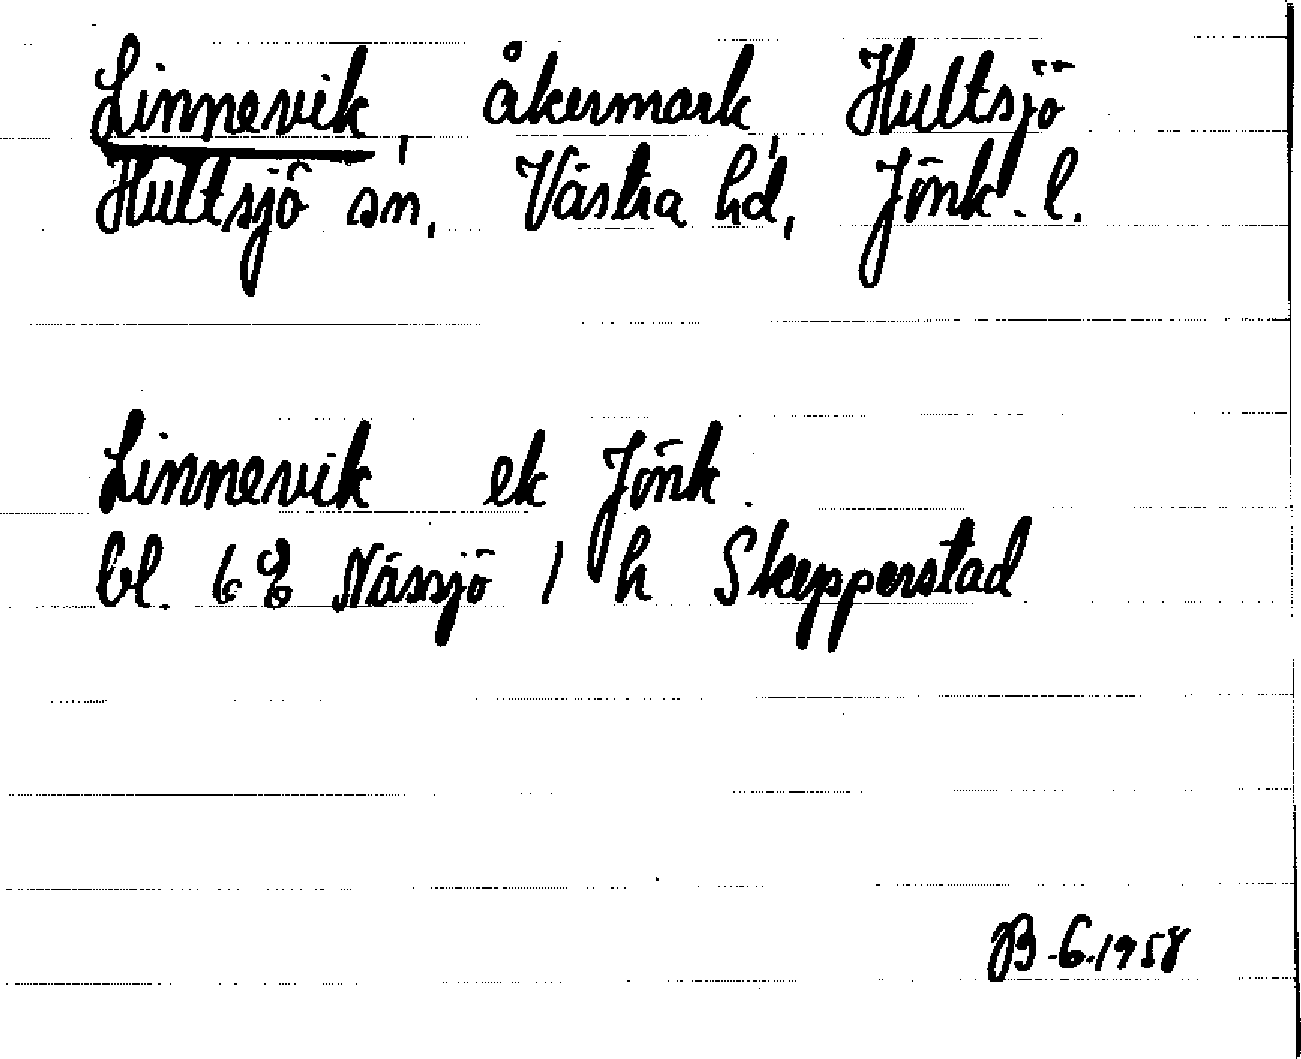 Linnevik, åkermark, Hultsjö
Hultsjö sn, Västra hd, Jönk. l.
Linnevik ek Jönk.
bl. 68 Nässjö 1 h Skepperstad
B.G. 1958